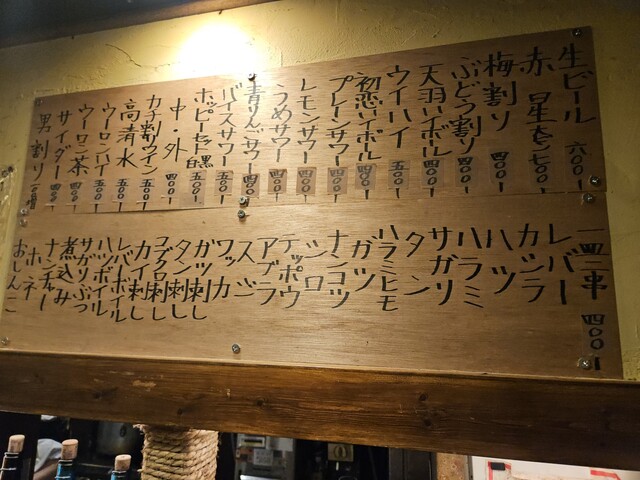 生ビール 六〇〇
赤星 七〇〇
梅割り 四〇〇
ぶどう割り 四〇〇
天羽ハイボール 四〇〇
ウイハイ 五〇〇
初恋ハイボール 四〇〇
プレーンサワー 四〇〇
レモンサワー 四〇〇
うめサワー 四〇〇
青りんごサワー 四〇〇
バイスサワー 五〇〇
ホッピーセット 白黒 五〇〇
中・外
カチ割ワイン 五〇〇
高清水 五〇〇
ウーロンハイ 五〇〇
ウーロン茶 四〇〇
サイダー 四〇〇
男割り
一皿二串 四〇〇
レバー
カシラ
ハツ
ハラミ
サガリ
タン
ハラミヒモ
ガツ
ナンコツ
シロ
テッポウ
アブラ
スジ
ワッカ
ガツ刺し
タン刺し
コブクロ刺し
カイ刺し
レバーボイル
ハツボイル
サガリぶつ
煮込み
ナンチャー
ホネ
おしんこ